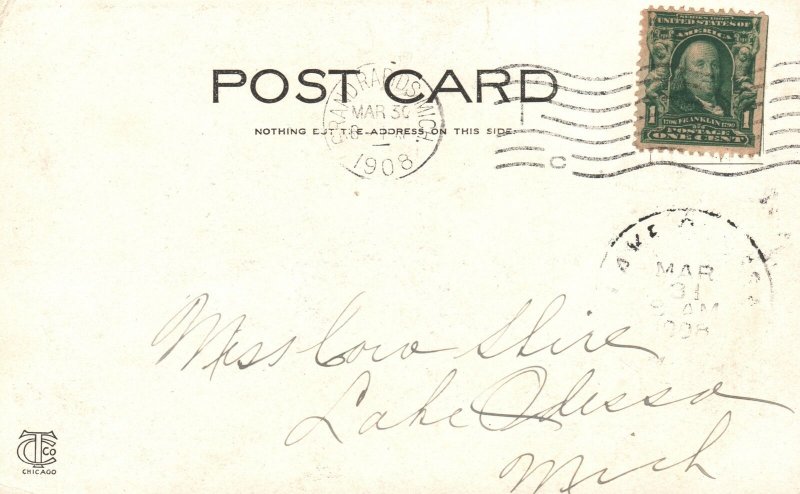 SERIES 1902
UNITED STATES OF
AMERICA
1706 FRANKLIN 1790
1 1
POSTAGE
ONE CENT
POST CARD
NOTHING BUT THE ADDRESS ON THIS SIDE.
GRAND RAPIDS, MICH.
MAR 30
1908
LAKE
MAR
31
AM
1908
Miss Cora Shire
Lake Odessa
Mich
TC Co
CHICAGO